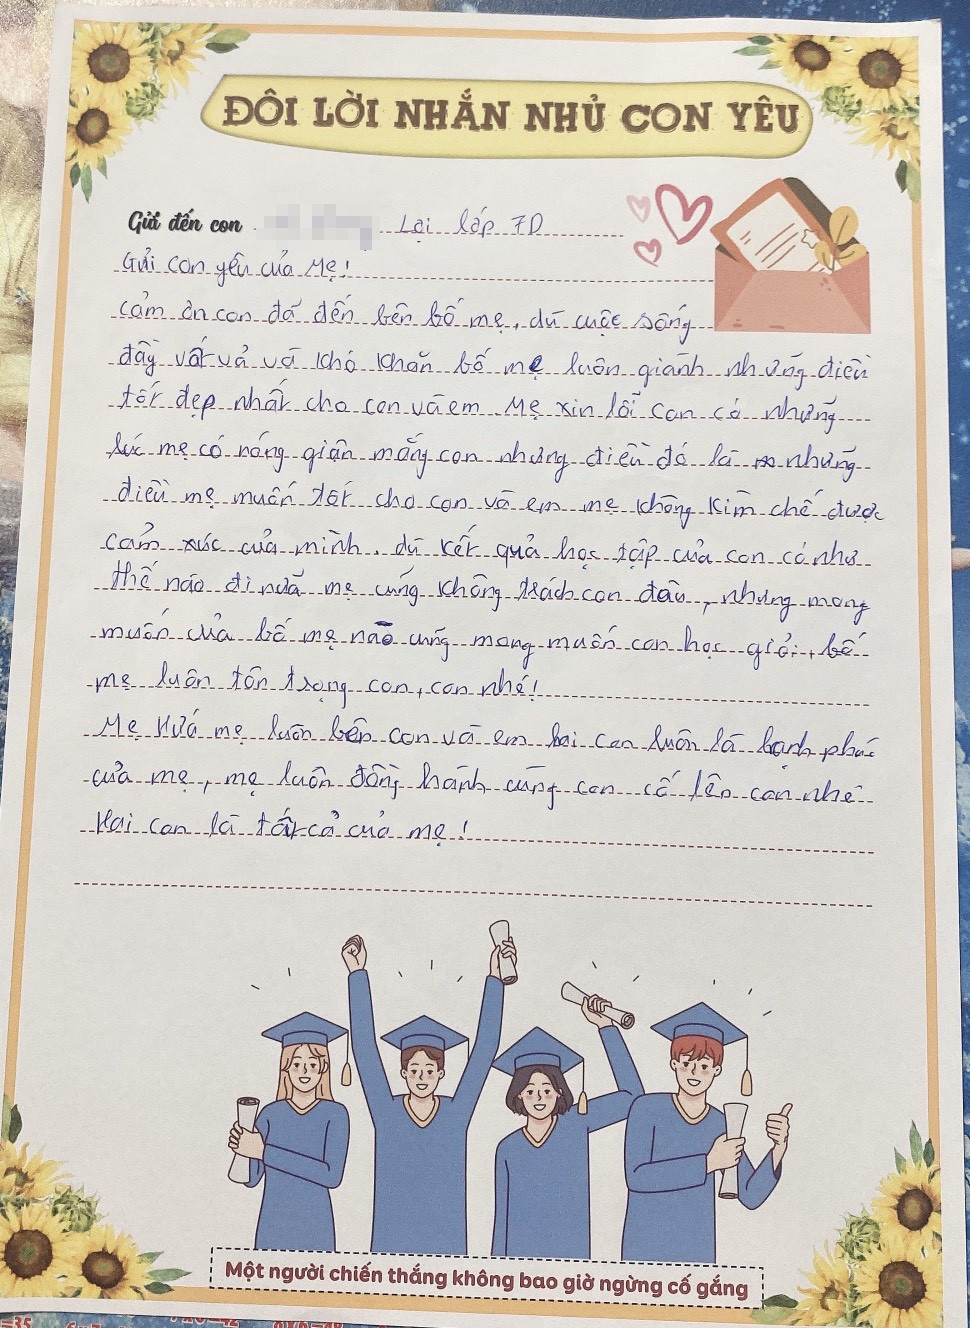 ĐÔI LỜI NHẮN NHỦ CON YÊU
Gửi đến con Lại lớp 7D
Gửi con yêu của Mẹ!
cảm ơn con đã đến bên bố mẹ, dù cuộc sống
đầy vất vả và khó khăn bố mẹ luôn giành những điều
tốt đẹp nhất cho con và em. Mẹ xin lỗi con có những
lúc mẹ có nóng giận mắng con nhưng điều đó là những
điều mẹ muốn tốt cho con và em mẹ không kìm chế được
cảm xúc của mình, dù kết quả học tập của con có như
thế nào đi nữa mẹ cũng không trách con đâu, nhưng mong
muốn của bố mẹ nào cũng mong muốn con học giỏi, bố
mẹ luôn tôn trọng con, con nhé!
Mẹ Hứa mẹ luôn bên con và em hai con luôn là hạnh phúc
của mẹ, mẹ luôn đồng hành cùng con cố lên con nhé
Hai con là tất cả của mẹ!
Một người chiến thắng không bao giờ ngừng cố gắng
=35